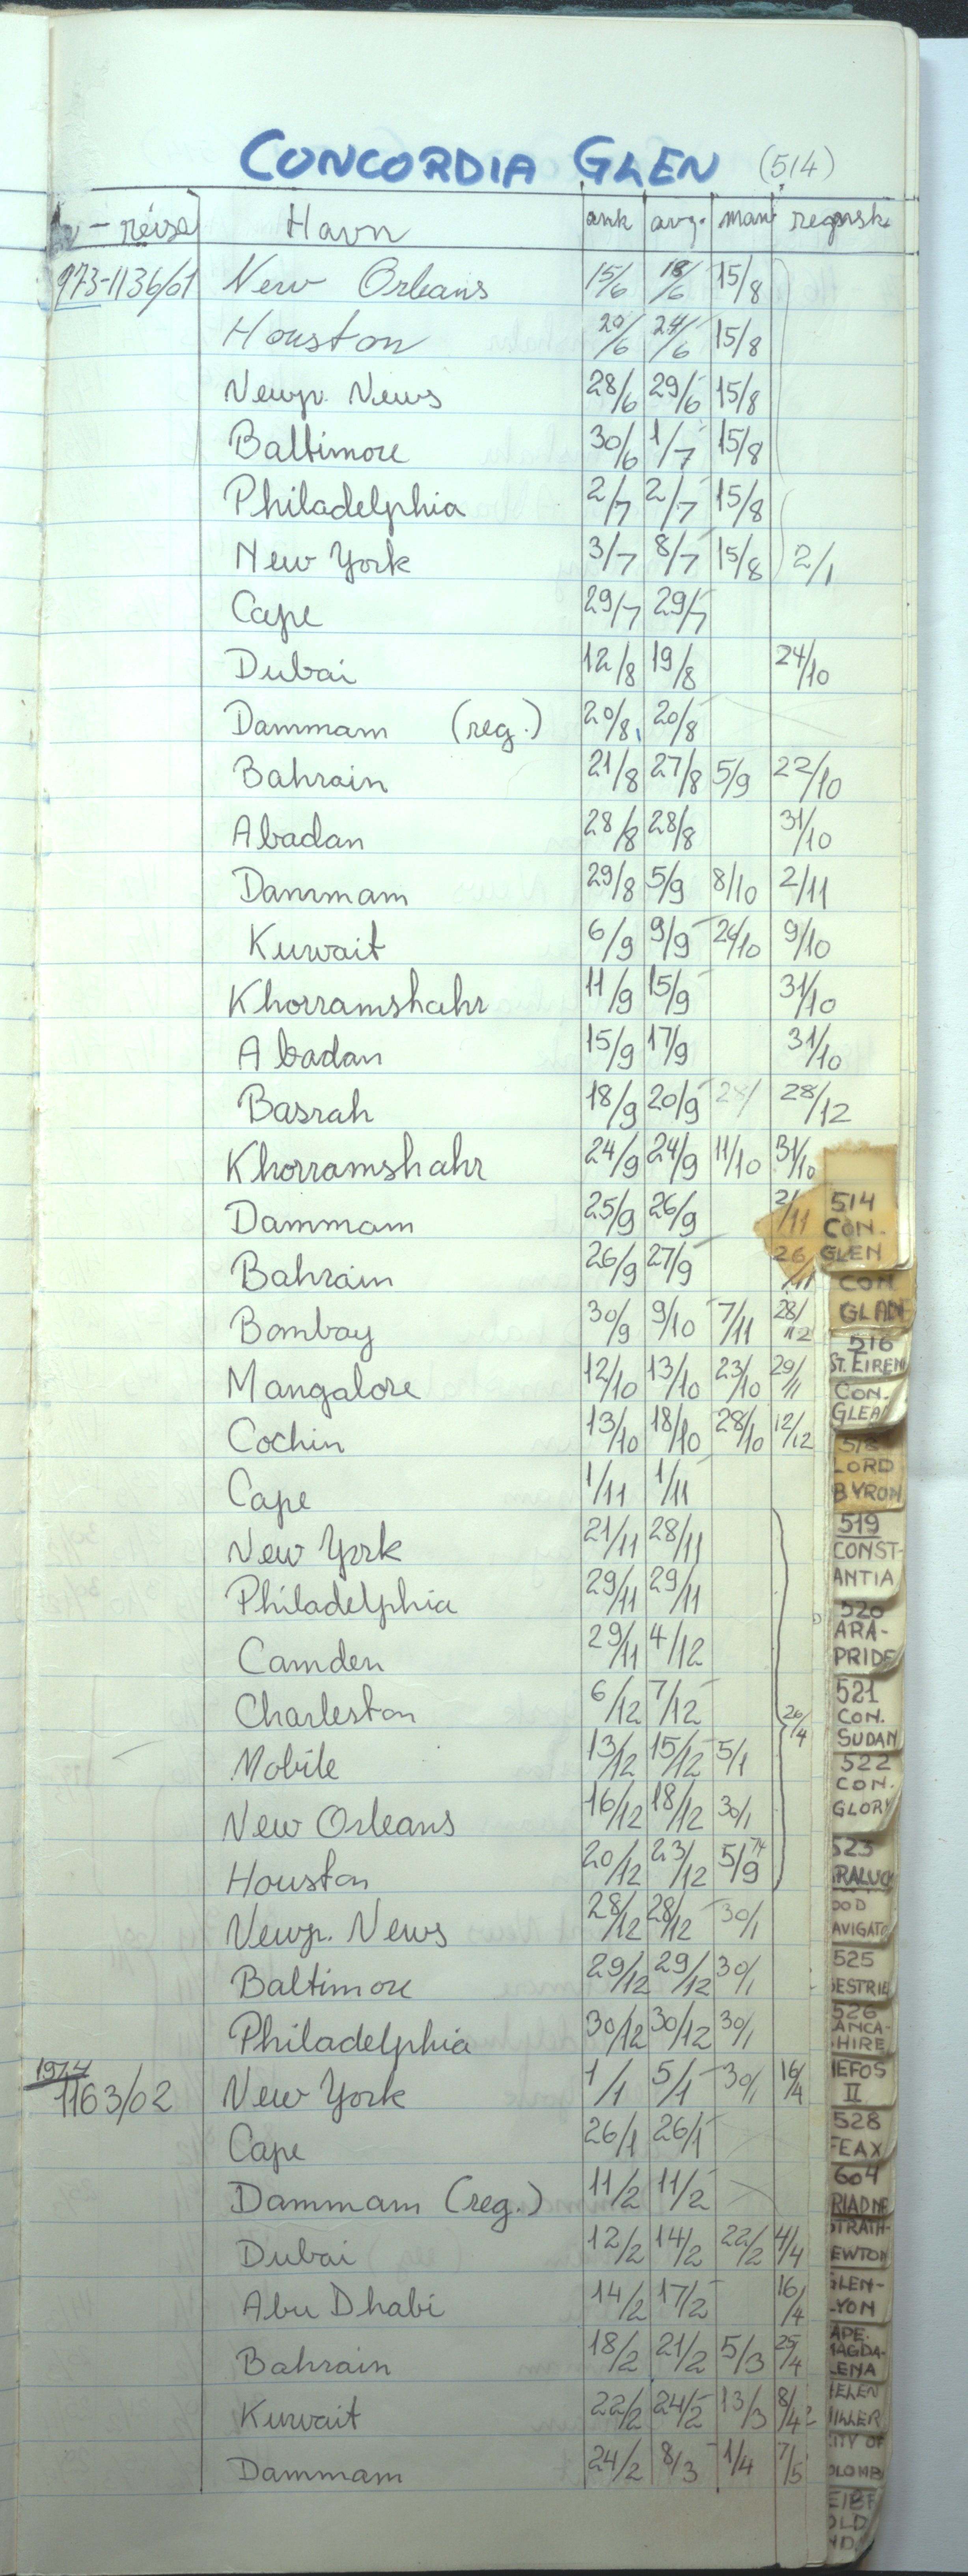 CONCORDIA GLEN (514)
- reise Havn ank avg. man regnsk.
973-1136/01 New Orleans 15/6 18/6 15/8
Houston 20/6 24/6 15/8
Newp. News 28/6 29/6 15/8
Baltimore 30/6 1/7 15/8
Philadelphia 2/7 2/7 15/8
New York 3/7 8/7 15/8 2/1
Cape 29/7 29/7
Dubai 12/8 19/8 24/10
Dammam (reg.) 20/8 20/8
Bahrain 21/8 27/8 5/9 22/10
Abadan 28/8 28/8 31/10
Dammam 29/8 5/9 8/10 2/11
Kuwait 6/9 9/9 26/10 9/10
Khorramshahr 11/9 15/9 31/10
Abadan 15/9 17/9 31/10
Basrah 18/9 20/9 28/ 28/12
Khorramshahr 24/9 24/9 11/10 31/10
Dammam 25/9 26/9 2/11
Bahrain 26/9 27/9 26/11
Bombay 30/9 9/10 7/11 28/12
Mangalore 12/10 13/10 23/10 29/11
Cochin 13/10 18/10 28/10 12/12
Cape 1/11 1/11
New York 21/11 28/11
Philadelphia 29/11 29/11
Camden 29/11 4/12
Charleston 6/12 7/12 26/4
Mobile 13/12 15/12 5/1
New Orleans 16/12 18/12 30/1
Houston 20/12 23/12 5/9 74
Newp. News 28/12 28/12 30/1
Baltimore 29/12 29/12 30/1
Philadelphia 30/12 30/12 30/1
1974
1163/02 New York 1/1 5/1 30/1 16/4
Cape 26/1 26/1
Dammam (reg.) 11/2 11/2
Dubai 12/2 14/2 22/2 4/4
Abu Dhabi 14/2 17/2 16/4
Bahrain 18/2 21/2 5/3 25/4
Kuwait 22/2 24/2 13/3 8/4
Dammam 24/2 8/3 1/4 7/5
514
CON.
GLEN
CON
GLADE
516
ST. EIREN
CON.
GLEA
518
LORD
BYRON
519
CONST-
ANTIA
520
ARA-
PRIDE
521
CON.
SUDAN
522
CON.
GLORY
523
RALUCK
OOD
AVIGATO
525
SESTRIE
526
ANCA-
HIRE
IEFOS
II
528
FEAX
604
RIADNE
STRATH-
EWTON
GLEN-
LYON
APE.
MAGDA-
LENA
HELEN
MILLER
CITY OF
OLOMB